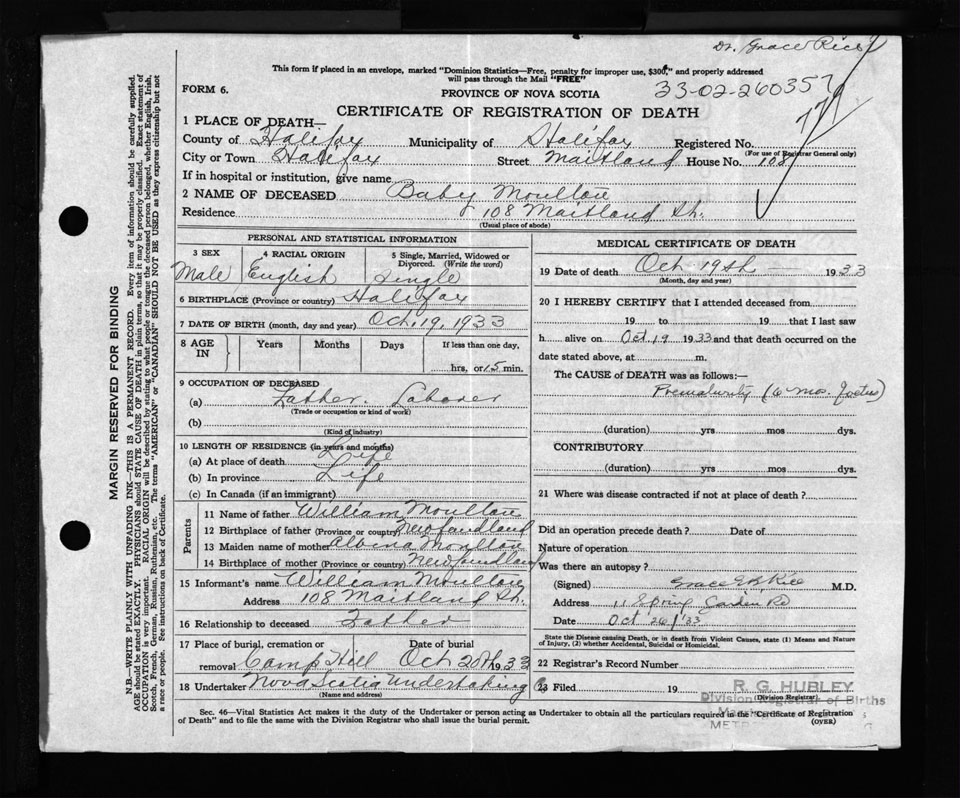 Dr. Grace Rice
This form if placed in an envelope, marked "Dominion Statistics—Free, penalty for improper use, $300," and properly addressed
will pass through the Mail "FREE"
FORM 6.
PROVINCE OF NOVA SCOTIA
33-02-260357
CERTIFICATE OF REGISTRATION OF DEATH
1 PLACE OF DEATH—
County of Halifax Municipality of Halifax Registered No.
(For use of Registrar General only)
City or Town Halifax Street Maitland House No. 108
If in hospital or institution, give name
2 NAME OF DECEASED Baby Moulton
Residence 108 Maitland St.
(Usual place of abode)
MARGIN RESERVED FOR BINDING
N.B.—WRITE PLAINLY WITH UNFADING INK—THIS IS A PERMANENT RECORD. Every item of information should be carefully supplied.
AGE should be stated EXACTLY. PHYSICIANS should STATE CAUSE OF DEATH in plain terms, so that it may be properly classified. Exact statement of
OCCUPATION is very important. RACIAL ORIGIN will be described by stating to what people or tongue the deceased person belonged, whether English, Irish,
Scotch, French, German, Russian, Ruthenian, etc. The terms "AMERICAN" or "CANADIAN" SHOULD NOT BE USED as they express citizenship but not
a race or people. See instructions on back of Certificate.
PERSONAL AND STATISTICAL INFORMATION
3 SEX
Male
4 RACIAL ORIGIN
English
5 Single, Married, Widowed or
Divorced. (Write the word)
Single
6 BIRTHPLACE (Province or country) Halifax
7 DATE OF BIRTH (month, day and year) Oct. 19, 1933
8 AGE IN Years Months Days If less than one day,
hrs. or 15 min.
9 OCCUPATION OF DECEASED
(a) Father. Laborer
(Trade or occupation or kind of work)
(b)
(Kind of industry)
10 LENGTH OF RESIDENCE (in years and months)
(a) At place of death Life
(b) In province Life
(c) In Canada (if an immigrant)
Parents
11 Name of father William Moulton
12 Birthplace of father (Province or country) Newfoundland
13 Maiden name of mother Albina Moulton
14 Birthplace of mother (Province or country) Newfoundland
15 Informant's name William Moulton
Address 108 Maitland St.
16 Relationship to deceased Father
17 Place of burial, cremation or Date of burial
removal Camp Hill Oct 20th 1933
18 Undertaker Nova Scotia Undertaking Co
(Name and address)
MEDICAL CERTIFICATE OF DEATH
19 Date of death Oct 19th 1933
(Month, day and year)
20 I HEREBY CERTIFY that I attended deceased from
19 to 19 that I last saw
h alive on Oct 19 1933 and that death occurred on the
date stated above, at m.
The CAUSE of DEATH was as follows:—
Prematurity (6 mo. foetus)
(duration) yrs mos dys.
CONTRIBUTORY
(duration) yrs mos dys.
21 Where was disease contracted if not at place of death?
Did an operation precede death? Date of
Nature of operation
Was there an autopsy?
(Signed) Grace E. B. Rice M.D.
Address 11 Spring Garden Rd
Date Oct 26/33
State the Disease causing Death, or in death from Violent Causes, state (1) Means and Nature
of Injury, (2) whether Accidental, Suicidal or Homicidal.
22 Registrar's Record Number
23 Filed 19 R. G. HUBLEY
(Division Registrar)
Division Registrar of Births
Sec. 46—Vital Statistics Act makes it the duty of the Undertaker or person acting as Undertaker to obtain all the particulars required in the "Certificate of Registration
of Death" and to file the same with the Division Registrar who shall issue the burial permit.
(OVER)